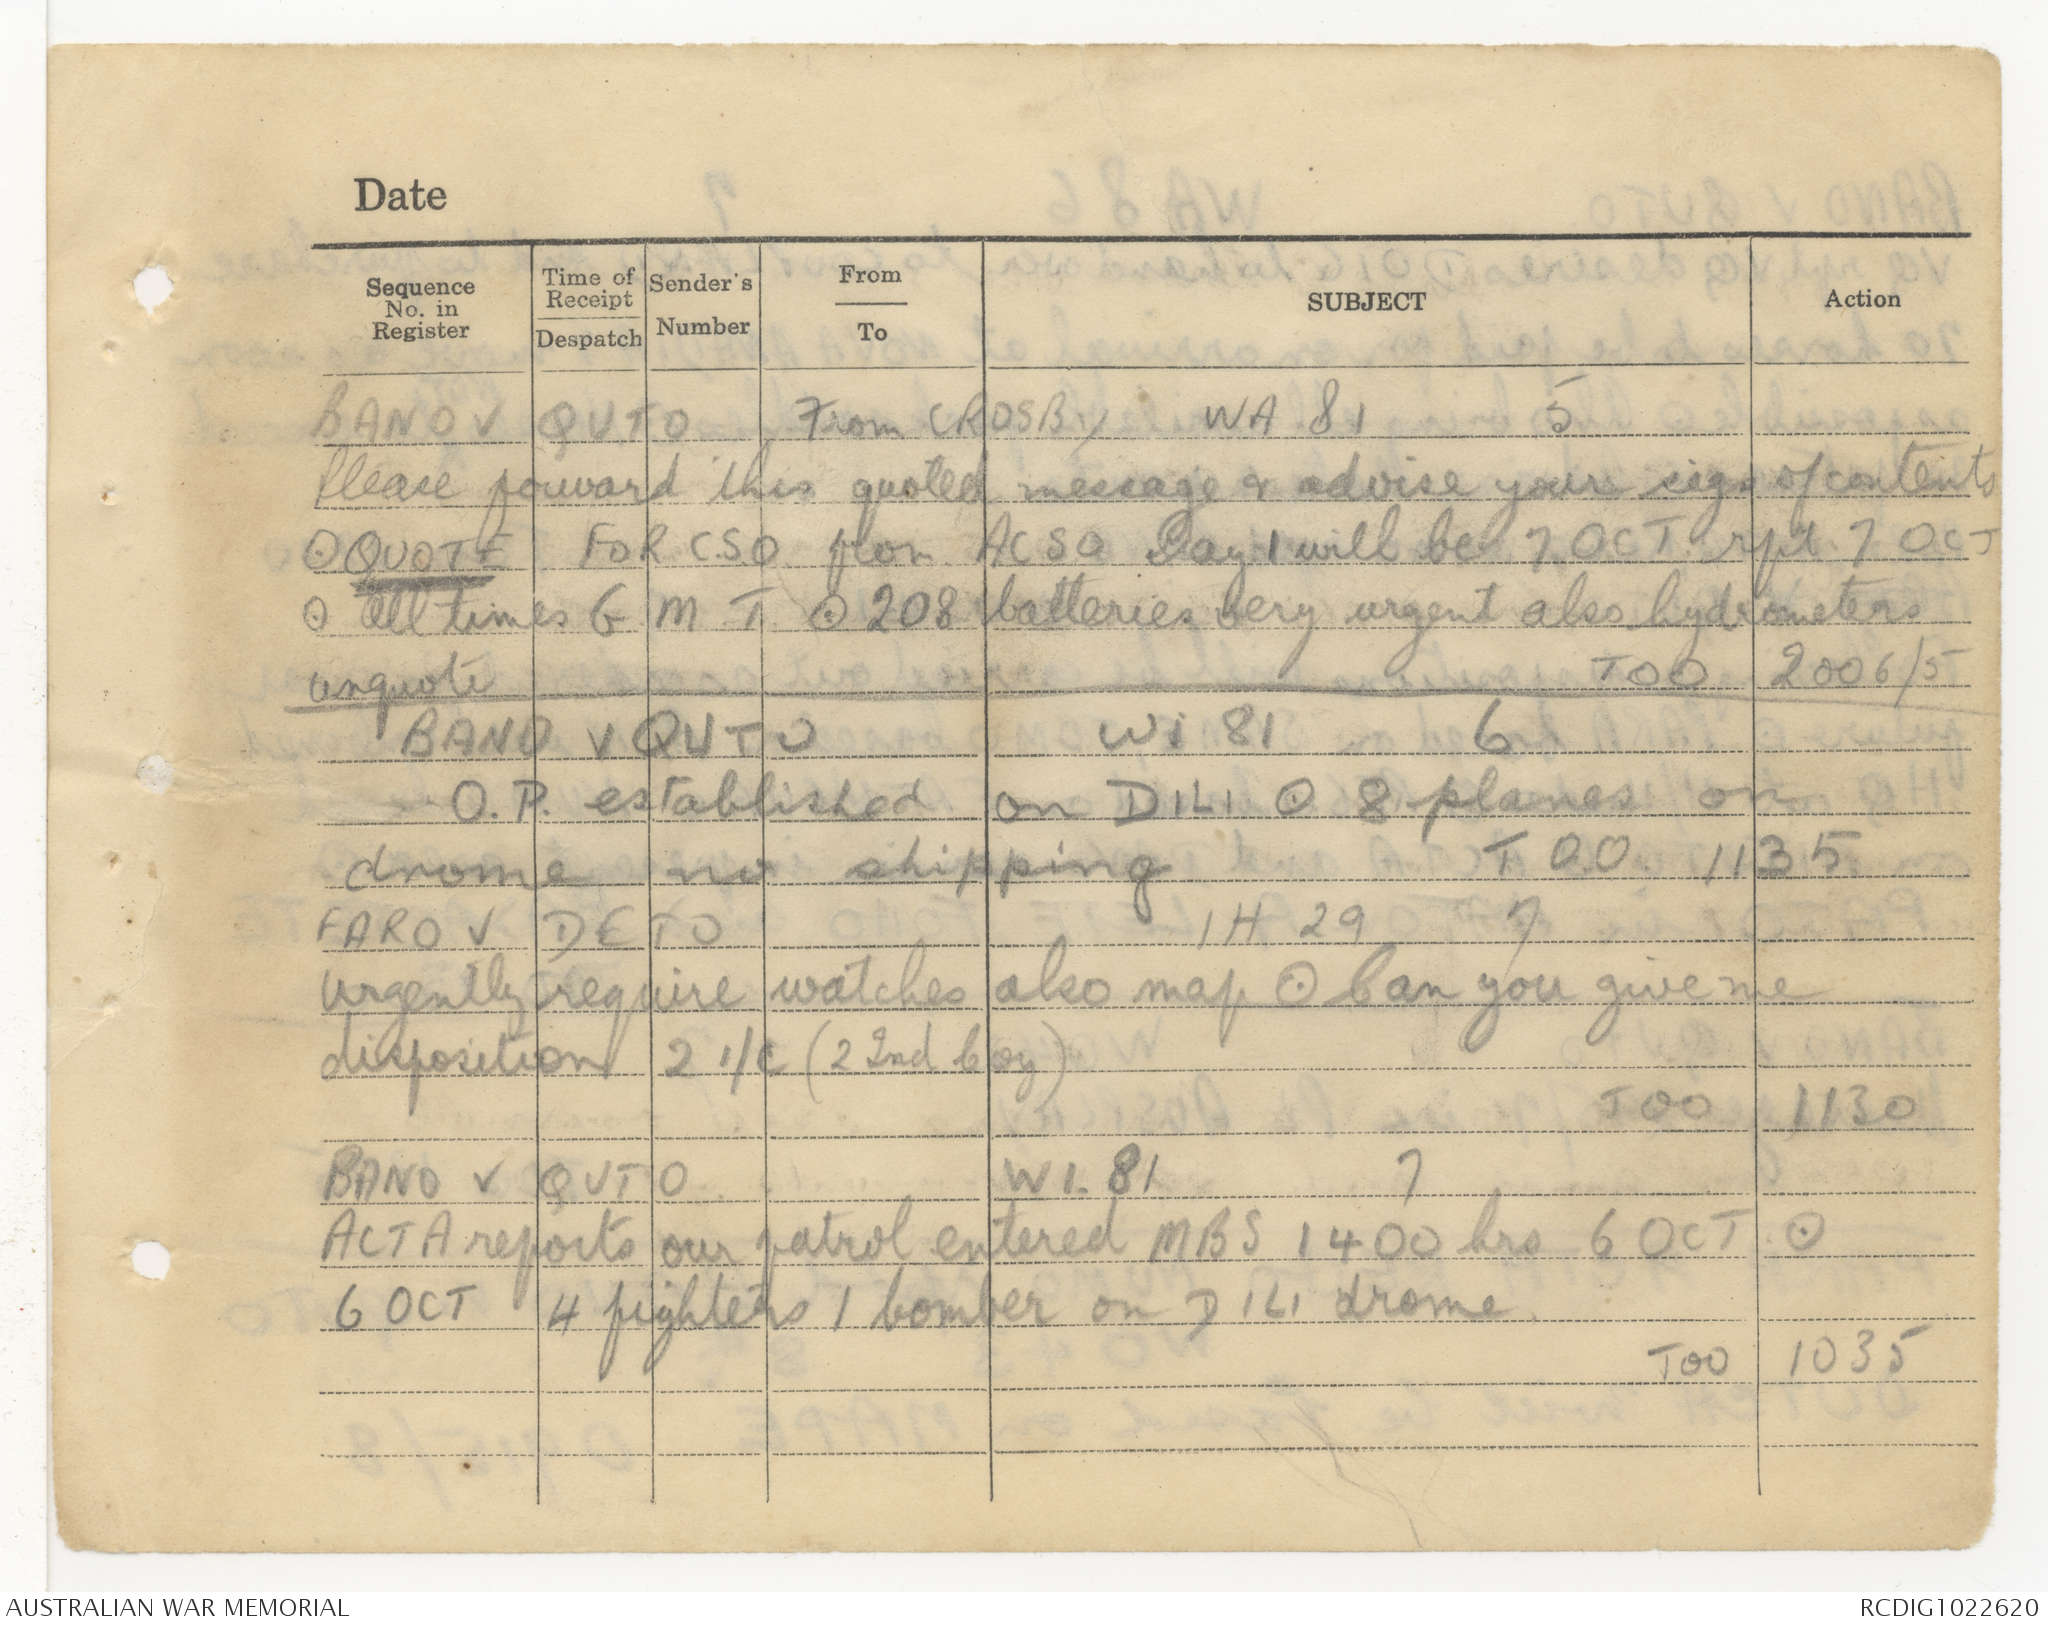 Date
Sequence No. in Register
Time of Receipt
Despatch
Sender's Number
From
To
SUBJECT
Action
BANO V QUTO From CROSBY WA 81 5
Please forward this quoted message & advise your sigs of contents
⊙ QUOTE FOR CSO from ACSO Day 1 will be 7 OCT rpt 7 OCT
⊙ All times G M T ⊙ 208 batteries very urgent also hydrometers
unquote TOO 2006/5
BANO V QUTO WI 81 6
O.P. established on DILI ⊙ 8 planes on
drome no shipping T O.O. 1135
FARO V DETO IH 29 7
Urgently require watches also map ⊙ Can you give me
disposition 2 i/c (2 2nd coy)
TOO 1130
BANO V QUTO WI. 81 7
ACTA reports our patrol entered MBS 1400 hrs 6 OCT ⊙
6 OCT 4 fighters 1 bomber on DILI drome.
TOO 1035
AUSTRALIAN WAR MEMORIAL
RCDIG1022620